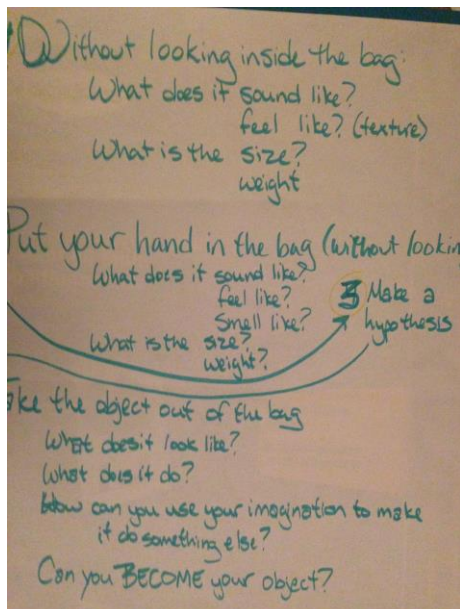 Without looking inside the bag:
What does it sound like?
feel like? (texture)
What is the size?
weight
Put your hand in the bag (without lookin
What does it sound like?
feel like?
Smell like?
What is the size?
weight?
3 Make a
hypothesis
ake the object out of the bag
What does it look like?
What does it do?
How can you use your imagination to make
it do something else?
Can you BECOME your object?